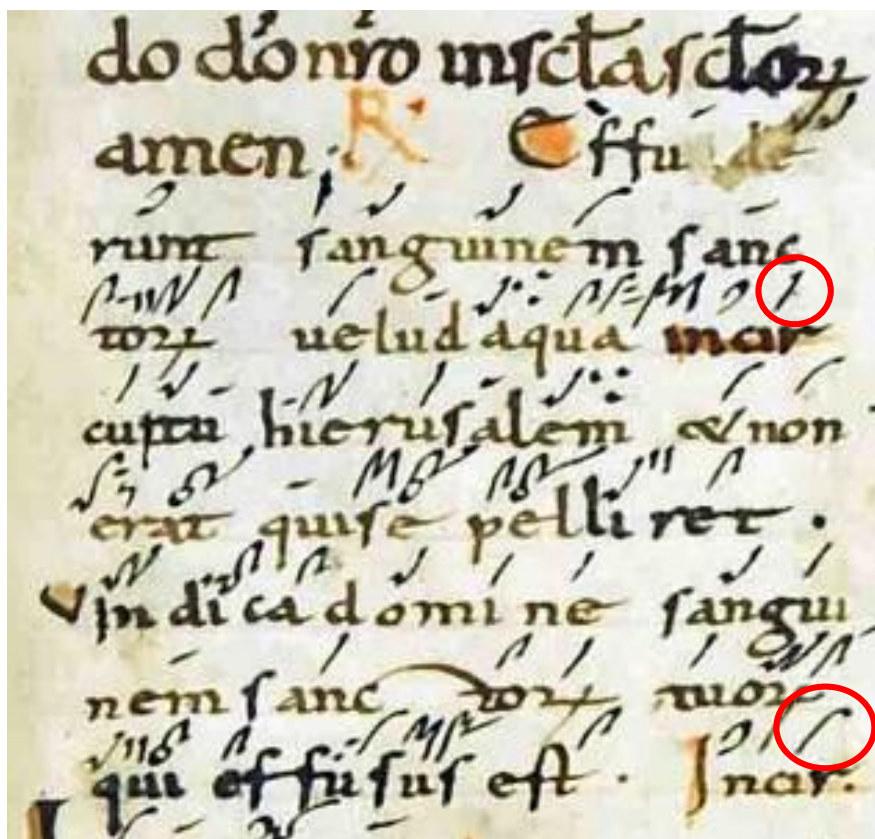 do insc̄tasc̄torꝝ
amen. R Effude
runt sanguinem sanc
torꝝ uelud aqua incir
hierusalem & non
erat quise pelliret.
Vindica domine sangui
nem sanc torꝝ tuorꝝ
qui effusus est. Incir.